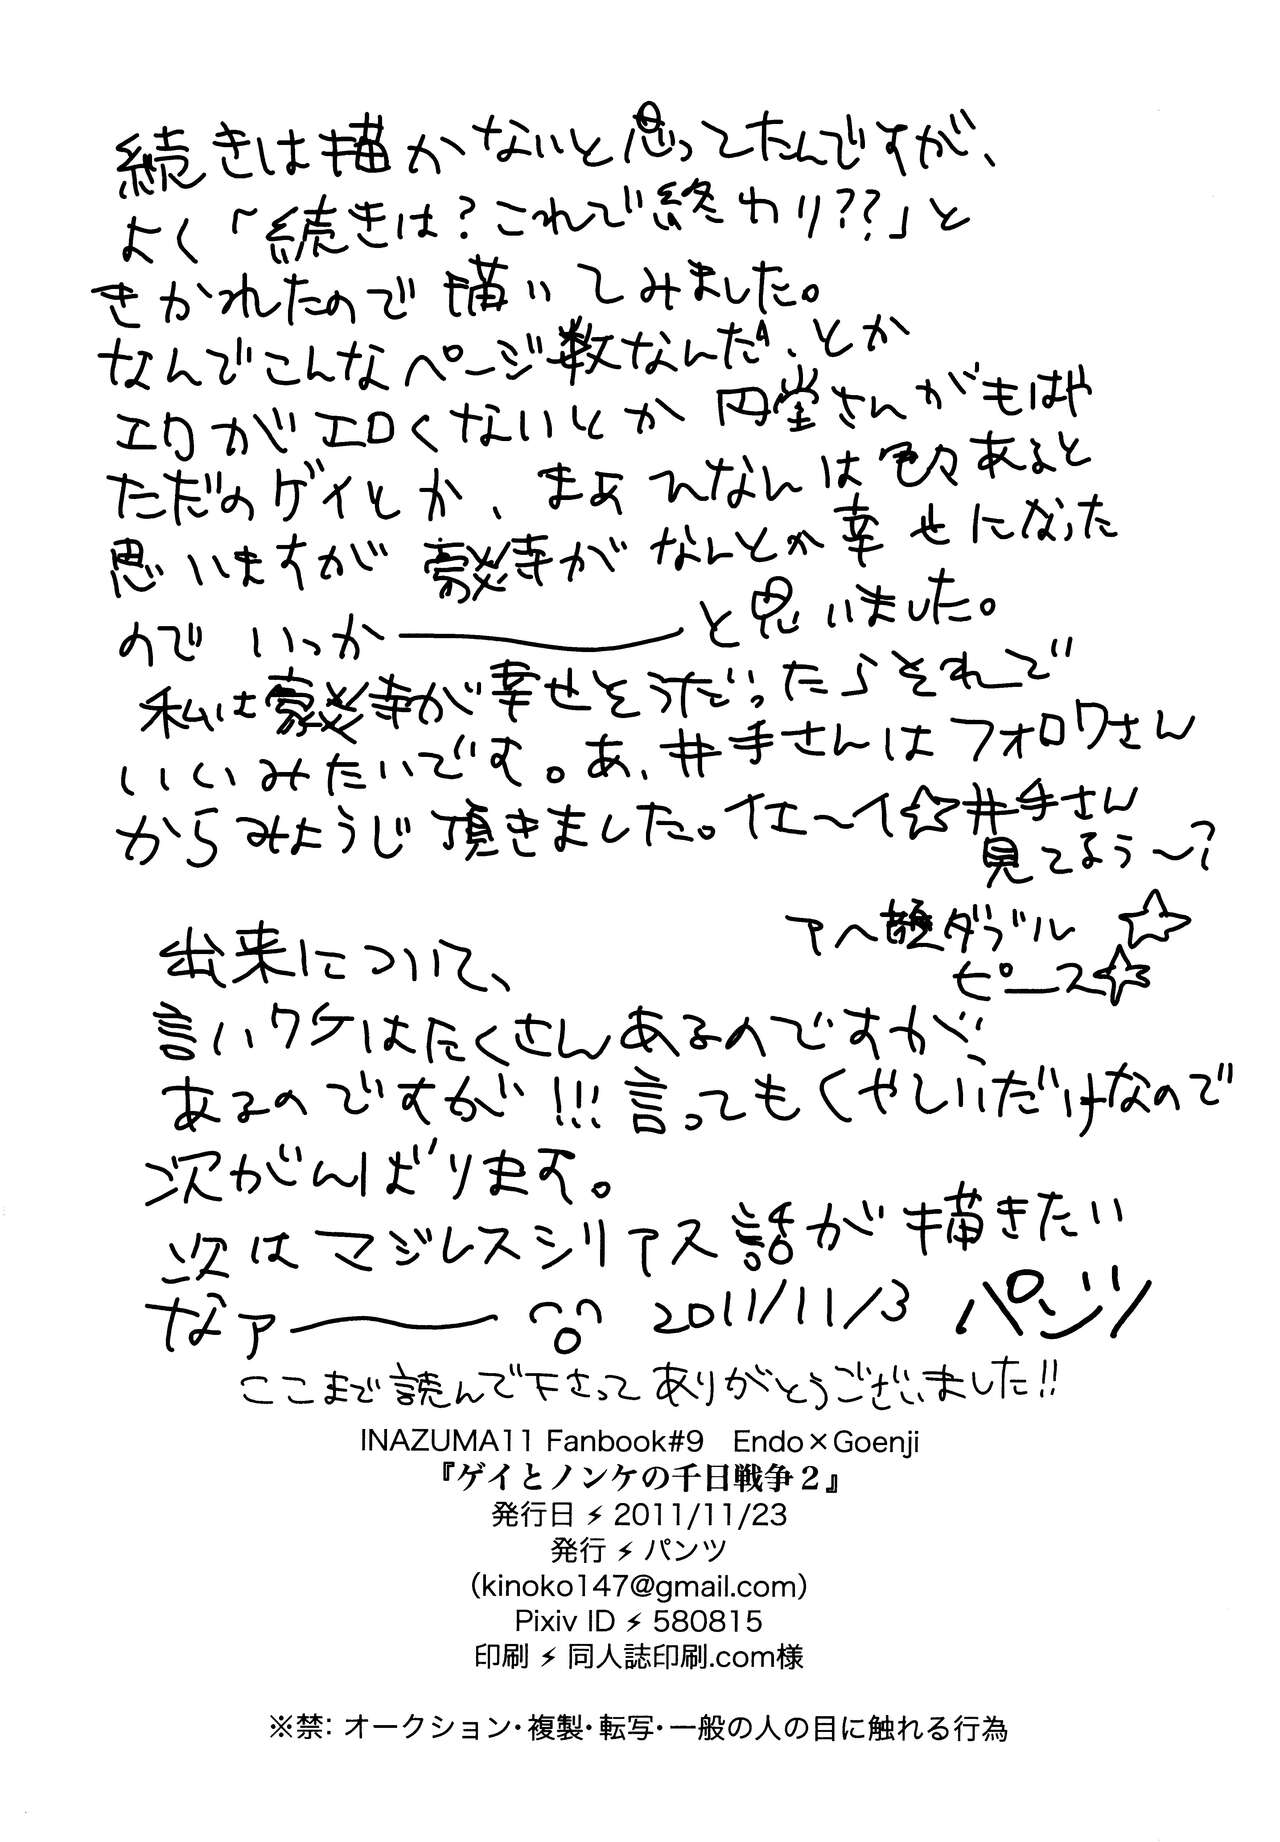 続きは描かないと思ってたんですが、
よく「続きは？これで終わり??」と
きかれたので描いてみました。
なんでこんなページ数なんだ、とか
エロがエロくないとか円堂さんがもはや
ただのゲイとか、まあひなんは色々あると
思いますが豪炎寺がなんとか幸せになった
のでいっか――――と思いました。
私は豪炎寺が幸せそうだったらそれで
いいみたいです。あ、井手さんはフォロワさん
からみょうじ頂きました。イエ〜イ☆井手さん
見てるぅ〜?
アヘ顔ダブル☆
ピース☆
出来について、
言いワケはたくさんあるのですが、
あるのですが!!!言ってもくやしいだけなので
次がんばります。
次はマジレスシリアス話が描きたい
なァ―――― 2011/11/3 パンツ
ここまで読んで下さってありがとうございました!!
INAZUMA11 Fanbook#9　Endo×Goenji
『ゲイとノンケの千日戦争２』
発行日⚡2011/11/23
発行⚡パンツ
（kinoko147@gmail.com）
Pixiv ID⚡580815
印刷⚡同人誌印刷.com様
※禁：オークション・複製・転写・一般の人の目に触れる行為